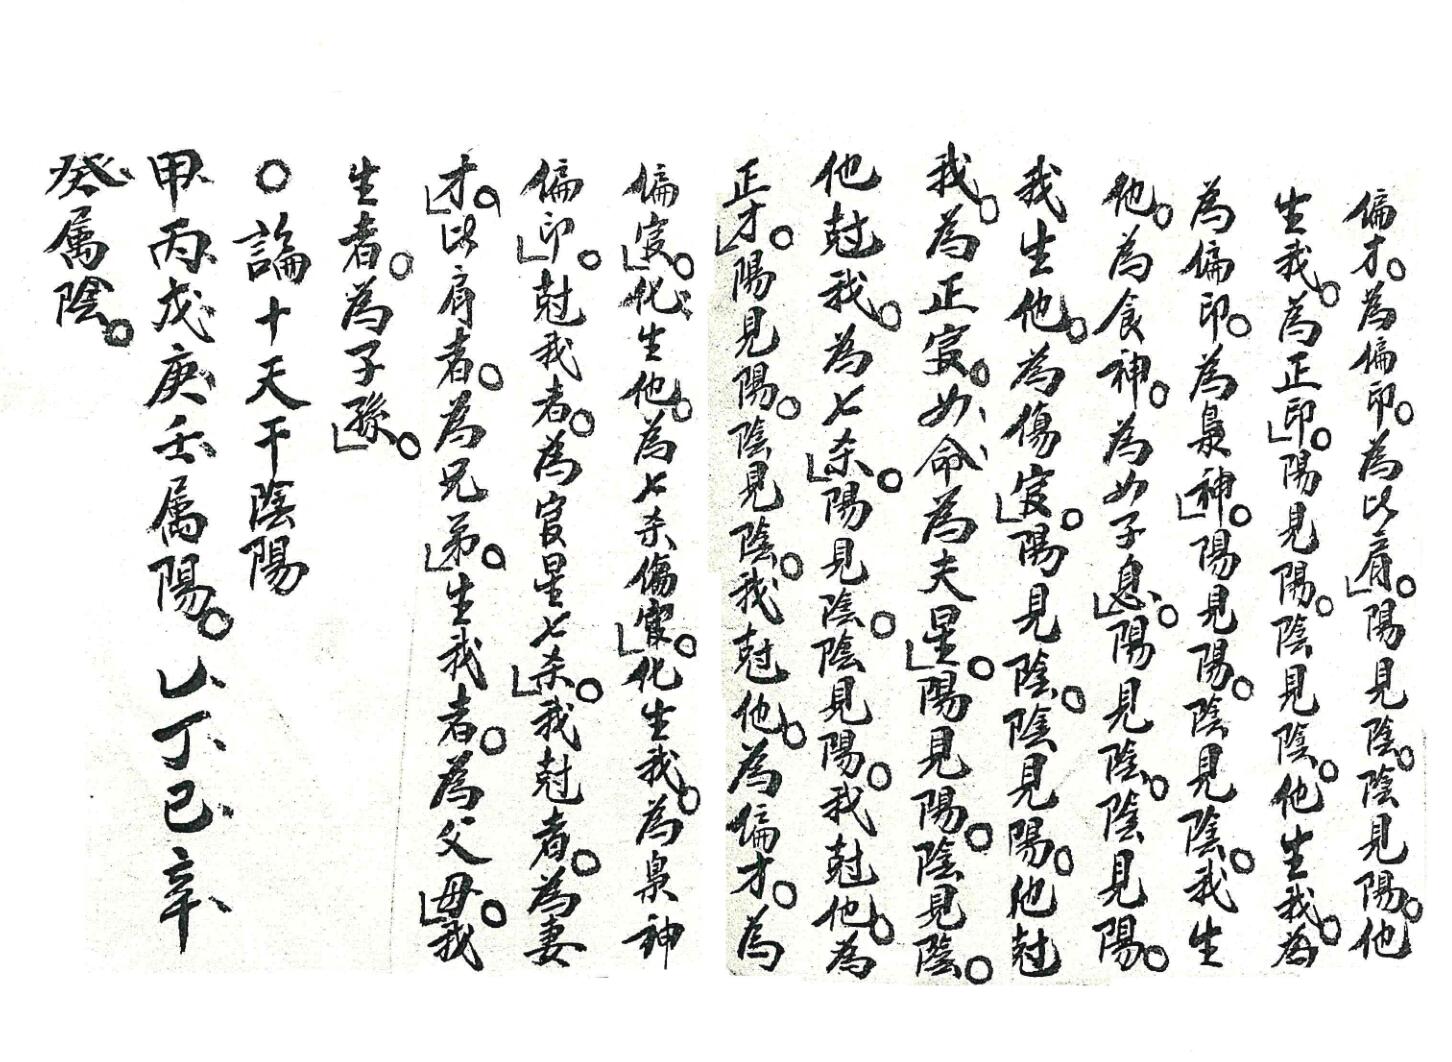 偏才。為偏印。為以肩。陽見陰。陰見陽。他
生我。為正印。陽見陽。陰見陰。他生我。為
為偏印。為梟神。陽見陽。陰見陰。我生
他。為食神。為女子息。陽見陰。陰見陽。
我生他。為傷官。陽見陰。陰見陽。他尅
我。為正官。女命為夫星。陽見陽。陰見陰。
他尅我。為七杀。陽見陰。陰見陽。我尅他。為
正才。陽見陽。陰見陰。我尅他。為偏才。為
偏官。化生他。為七杀傷官。化生我。為梟神
偏印。尅我者。為官星七杀。我尅者。為妻
才。以肩者。為兄弟。生我者。為父母。我
生者。為子孫。
○論十天干陰陽
甲、丙、戊、庚、壬、属陽。乙、丁、己、辛、
癸、属陰。